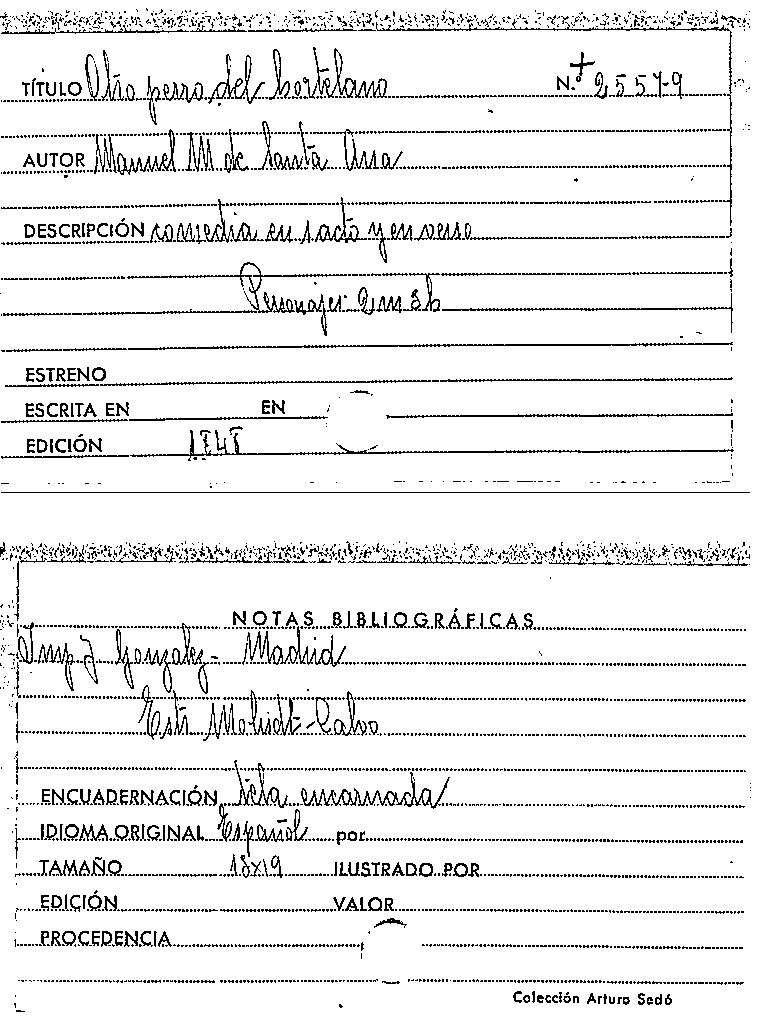 TÍTULO Otro perro del hortelano N.º 25579
AUTOR Manuel M de Santa Ana
DESCRIPCIÓN comedia en 1 acto y en verso
Personajes 2m 3h
ESTRENO
ESCRITA EN EN
EDICIÓN 1848
NOTAS BIBLIOGRÁFICAS
Imp J González - Madrid
Estr Calvo
ENCUADERNACIÓN tela encarnada
IDIOMA ORIGINAL Español por
TAMAÑO 13x19 ILUSTRADO POR
EDICIÓN VALOR
PROCEDENCIA
Colección Arturo Sedó